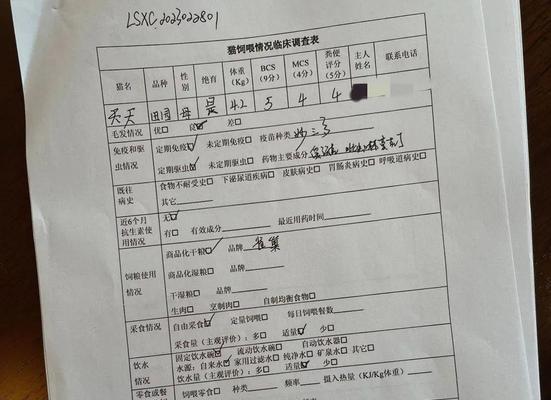 LSXC.2023022801
猫饲喂情况临床调查表
猫名 品种 性别 绝育 体重(Kg) BCS(9分) MCS(4分) 粪便评分(5分) 主人姓名 联系电话
天天 田园 母 是 4.2 5 4 4
毛发情况 优□ 良☑ 差□
免疫和驱虫情况 定期免疫☑ 未定期免疫□ 疫苗种类 妙三多
定期驱虫☑ 未定期驱虫□ 药物主要成分
既往病史 食物不耐受史□ 下泌尿道疾病□ 皮肤病史□ 胃肠炎病史□ 呼吸道病史□
其它
近6个月抗生素使用情况 无☑
有□ 有效成分 最近用药时间
饲粮使用情况 商品化干粮☑ 品牌 雀巢
商品化湿粮□ 品牌
干湿粮□ 品牌
生肉□ 烹制肉□ 自制均衡食物□
采食情况 自由采食☑ 定量饲喂□ 每日饲喂餐数
采食量(主观评价):多□ 适量☑ 少□
饮水情况 固定饮水碗☑ 流动饮水碗□ 自动饮水器□
水源:自来水☑ 家用过滤水□ 纯净水□ 矿泉水□
饮水量(主观评价):多□ 适量☑ 少□
零食或餐 饲喂零食□ 种类 频率 摄入热量(KJ/Kg体重)